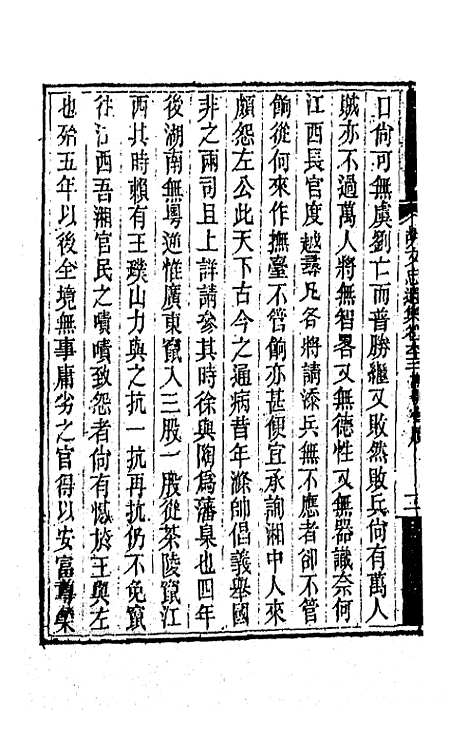 日尚可無虞劉亡而普勝繼又敗然敗兵尚有萬人
賊亦不過萬人將無智畧又無德性又無器識奈何
江西長官度越尋凡各將請添兵無不應者卻不管
餉從何來作撫臺不管餉亦甚便宜承詢湘中人來
頗怨左公此天下古今之通病昔年滌帥倡義舉國
非之兩司且上詳請參其時徐與陶爲藩臬也四年
後湖南無粵逆惟廣東竄入三股一股從茶陵竄江
西其時賴有王璞山力與之抗一抗再抗仍不免竄
往江西吾湘官民之嘖嘖致怨者尚有憾於王與左
也殆五年以後全境無事庸劣之官得以安富尊榮
胡文忠遺集卷
二